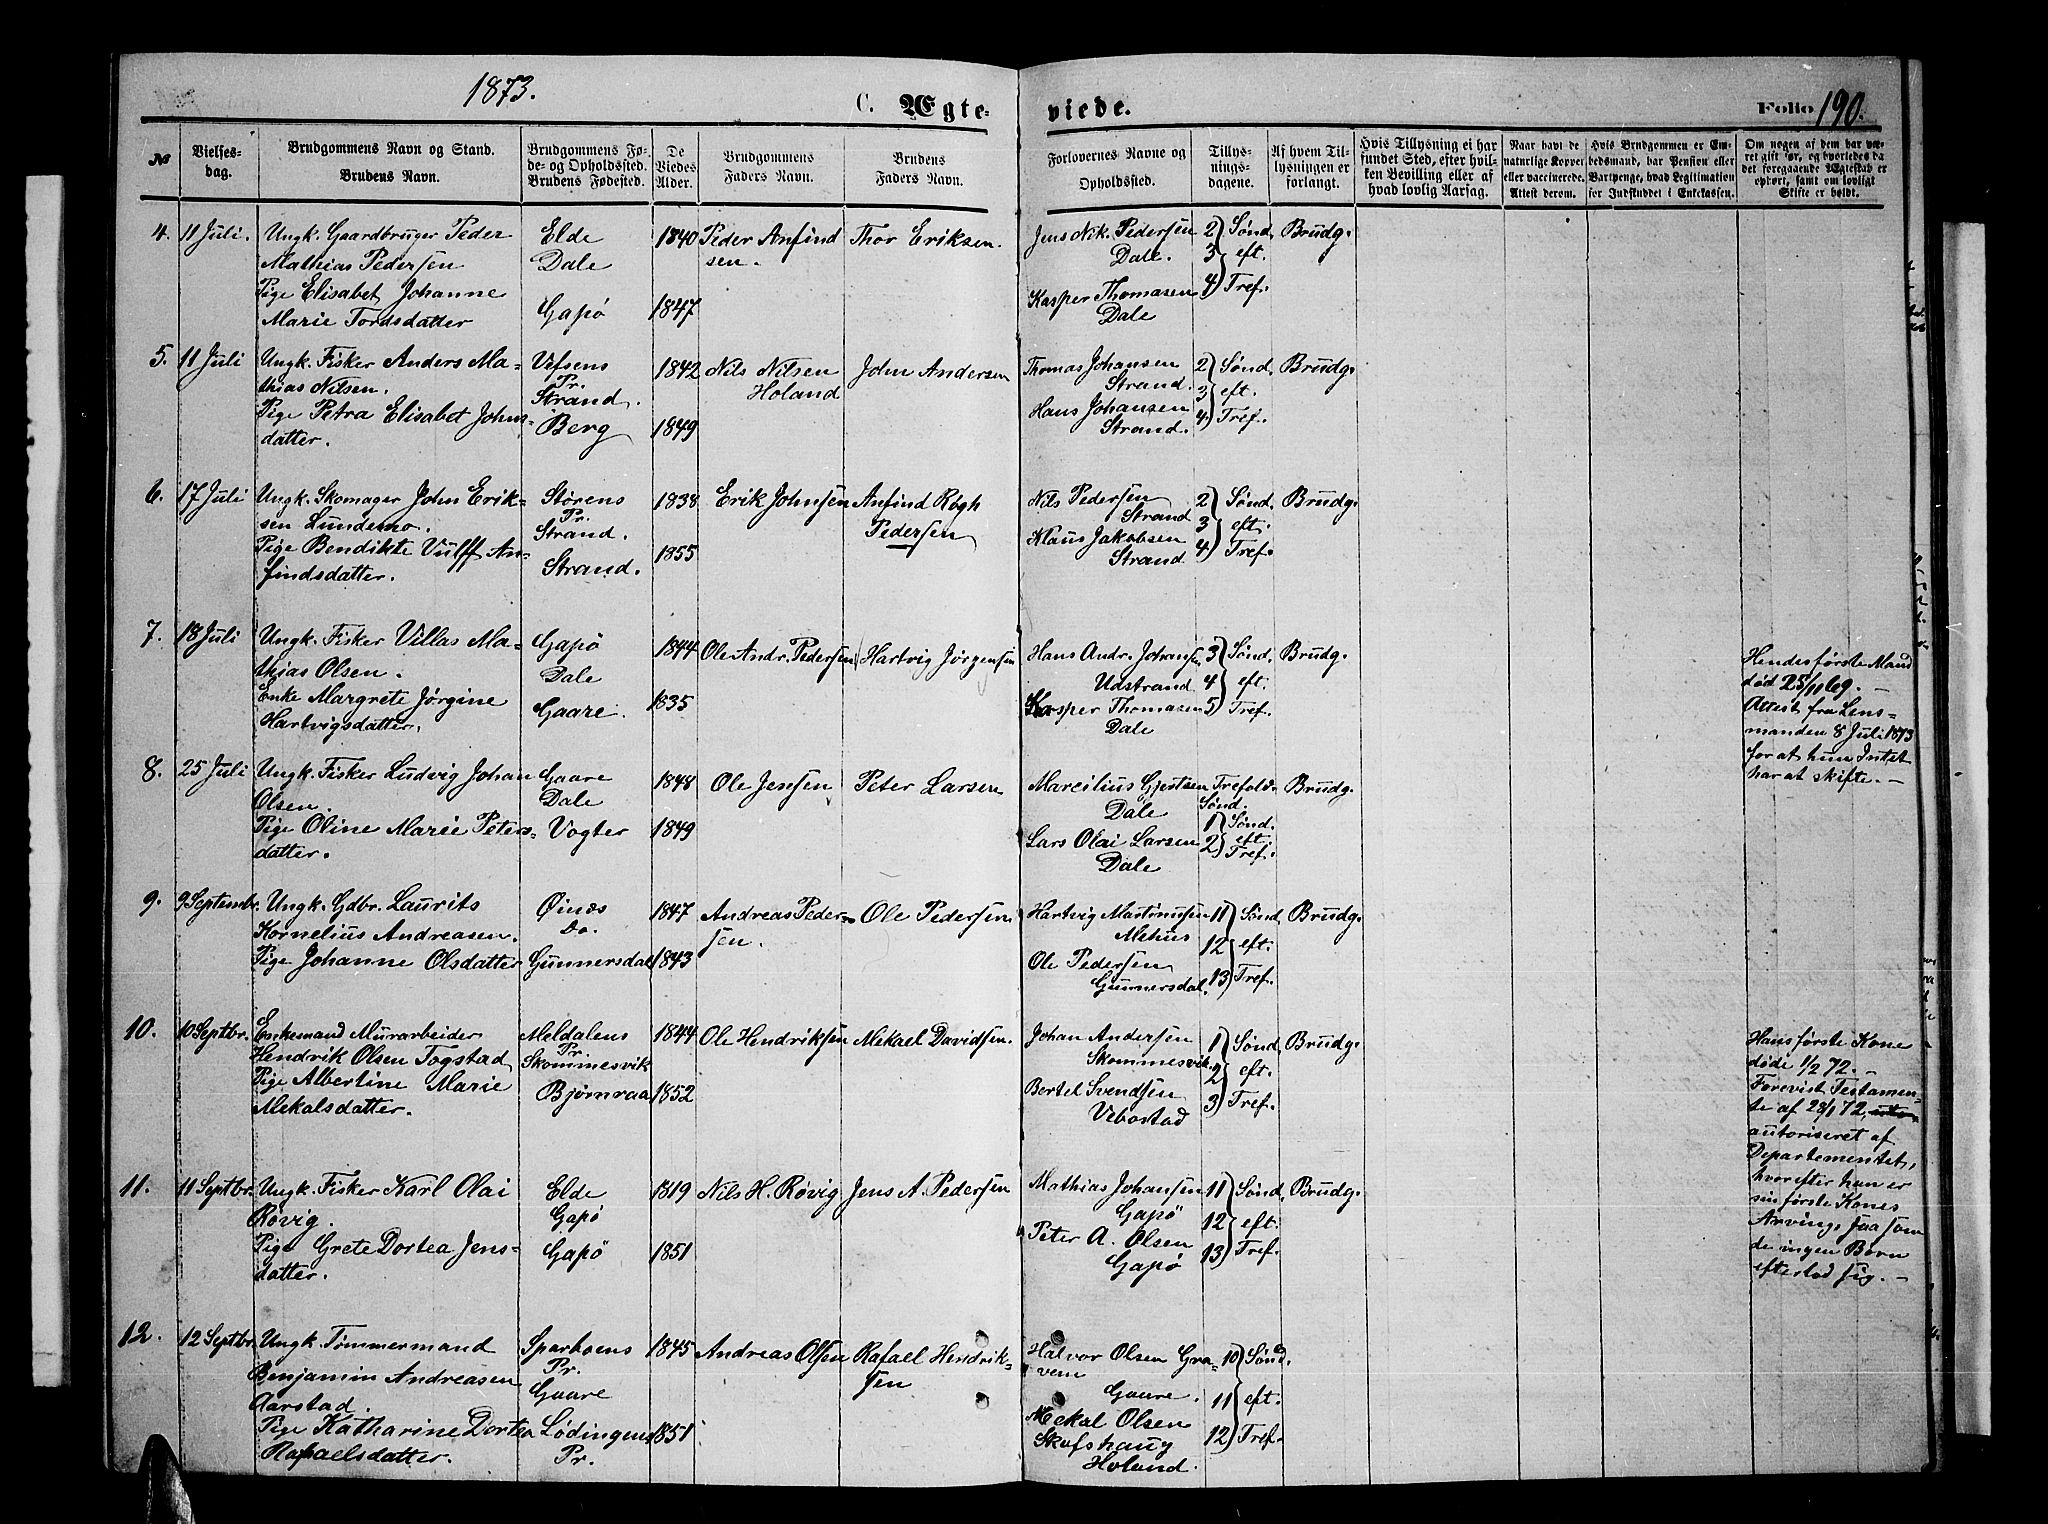 1873.
C. Ægte-
viede.
Folio 190.
№
Vielses-
dag.
Brudgommens Navn og Stand.
Brudens Navn.
Brudgommens Fø-
de- og Opholdssted.
Brudens Fødested.
De
Viedes
Alder.
Brudgommens
Faders Navn.
Brudens
Faders Navn.
Forlovernes Navne og
Opholdssted.
Tillys-
nings-
dagene.
Af hvem Til-
lysningen er
forlangt.
Hvis Tillysning ei har
fundet Sted, efter hvil-
ken Bevilling eller af
hvad lovlig Aarsag.
Naar havt de
naturlige Kopper
eller vaccinerede.
Attest derom.
Hvis Brudgommen er Em-
bedsmand, har Pension eller
Vartpenge, hvad Legitimation
for Indskuddet i Enkekassen.
Om nogen af dem har væ-
ret gift før, og hvorledes da
det foregaaende Ægteskab er
ophørt, samt om lovligt
Skifte er holdt.
4. 11 Juli. Ungk. Gaardbruger Peder
Mathias Pedersen
Pige Elisabet Johanne
Marie Tordsdatter
Elde
Dale
Gapø
1840
1847
Peder Anfind
sen.
Thor Eriksen.
Jens Nik. Pedersen
Dale.
Kasper Thomasen
Dale
2 Sønd.
3 eft.
4 Tref.
Brudg.
5. 11 Juli Ungk. Fisker Anders Ma-
thias Nilsen.
Pige Petra Elisabet Johns-
datter.
Vefsens
Pr.
Strand.
Berg
1842
1849
Nils Nilsen
Holand
John Andersen
Thomas Johansen
Strand.
Hans Johansen
Strand.
2 Sønd.
3 eft.
4 Tref.
Brudg.
6. 17 Juli Ungk. Skomager John Erik-
sen Lundemo.
Pige Bendikte Vulff An-
findsdatter.
Størens
Pr.
Strand.
Strand.
1838
1855
Erik Johnsen
Anfind Røgh
Pedersen
Nils Pedersen
Strand
Klaus Jakobsen
Strand
2 Sønd.
3 eft.
4 Tref.
Brudg.
7. 18 Juli Ungk. Fisker Villas Ma-
thias Olsen.
Enke Margrete Jørgine
Hartvigsdatter.
Gapø
Dale
Gaare.
1844
1835
Ole Andr. Pedersen
Hartvig Jørgensen
Hans Andr. Johansen
Udstrand
Kasper Thomasen
Dale
3 Sønd.
4 eft.
5 Tref.
Brudg.
Hendes første Mand
død 25/11 69. -
Attest fra Lens-
manden 8 Juli 1873
for at hun Intet
har at skifte. -
8. 25 Juli Ungk. Fisker Ludvig Johan
Olsen.
Pige Oline Marie Peters-
datter.
Gaare
Dale
Vogter
1848
1849
Ole Jensen
Peter Larsen
Marcilius Gjertsen
Dale
Lars Olai Larsen
Dale
Trefold.
Sønd.
1 Sønd.
2 eft.
Tref.
Brudg.
9. 9 Septembr. Ungk. Gdbr. Laurits
Kornelius Andreasen.
Pige Johanne Olsdatter
Øinæs
Do.
Gunnersdal
1847
1843
Andreas Peder-
sen.
Ole Pedersen
Hartvig Martinusen
Ole Pedersen
Gunnersdal.
11 Sønd.
12 eft.
13 Tref.
Brudg.
10. 10 Septbr. Enkemand Murarbeider
Hendrik Olsen Togstad
Pige Albertine Marie
Mekalsdatter.
Meldalens
Pr.
Skommesvik
Bjørnraa
1844
1852
Ole Hendriksen
Mekael Davidsen.
Johan Andersen
Skommesvik.
Bertel Svendsen
Vebostad
1 Sønd.
2 eft.
3 Tref.
Brudg.
Hans første Kone
døde 1/2 72. -
Forevist Testamen-
te af 28/1 72
autoriseret af
Departementet,
hvorefter han er
sin første Kones
Arving, saasom
de ingen Børn
efterlod sig. -
11. 11 Septbr. Ungk. Fisker Karl Olai
Røvig.
Pige Grete Dortea Jens-
datter.
Elde
Gapø
Gapø
1819
1851
Nils H. Røvig
Jens A. Pedersen
Mathias Johansen
Gapø
Peter A. Olsen
Gapø
11 Sønd.
12 eft.
13 Tref.
Brudg.
12. 12 Septbr. Ungk. Tømmermand
Benjamin Andreasen
Aarstad.
Pige Katharine Dortea
Rafaelsdatter.
Sparboens
Pr.
Gaare
Lødingens
Pr.
1845
1851
Andreas Olsen
Rafael Hendrik-
sen
Halvor Olsen Gra-
vem
Gaare.
Mekal Olsen
Skefshaug
Holand.
10 Sønd.
11 eft.
12 Tref.